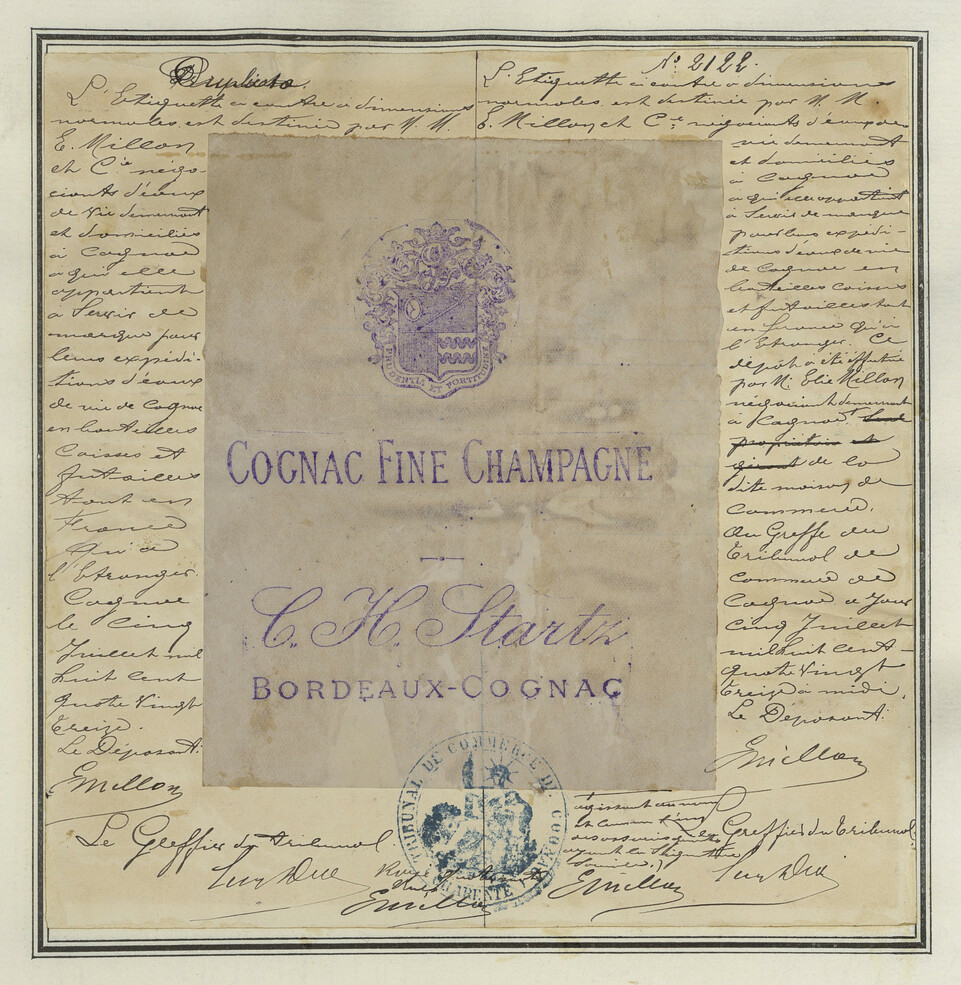 Duplicata.
L'Etiquette ci contre à dimensions
normales est destinée par M. M.
E. Millon
et Cie négo-
ciants d'eaux
de vie demeurant
et domiciliés
à Cognac
à qui elle
appartient
à Servir de
marque pour
leurs expédi-
tions d'eaux
de vie de Cognac
en bouteilles
Caisses et
futailles
tant en
France
qu'à
l'Etranger.
Cognac
le Cinq
Juillet mil
huit cent
quatre Vingt
treize.
Le Déposant.
EMillon
Le Greffier du Tribunal
PRUDENTIA ET FORTITUDINE
COGNAC FINE CHAMPAGNE
C. H. Startz
BORDEAUX-COGNAC
TRIBUNAL DE COMMERCE DE COGNAC
CHARENTE
No 2122.
L'Etiquette ci contre à dimensions
normales est destinée par M. M.
E. Millon et Cie négociants d'eaux de
vie demeurant
et domiciliés
à Cognac
à qui elle appartient
à Servir de marque
pour leurs expédi-
tions d'eaux de vie
de Cognac en
bouteilles Caisses
et futailles tant
en France qu'à
l'Etranger. Ce
dépôt a été effectué
par M. Elie Millon
négociant demeurant
à Cognac Seul
propriétaire et
gérant de la
dite maison de
Commerce.
Au Greffe du
Tribunal de
Commerce de
Cognac ce Jour
Cinq Juillet
mil huit cent
quatre Vingt
treize à midi.
Le Déposant.
EMillon
agissant au nom
et comme
ayant la Signature
EMillon
Greffier du Tribunal
EMillon